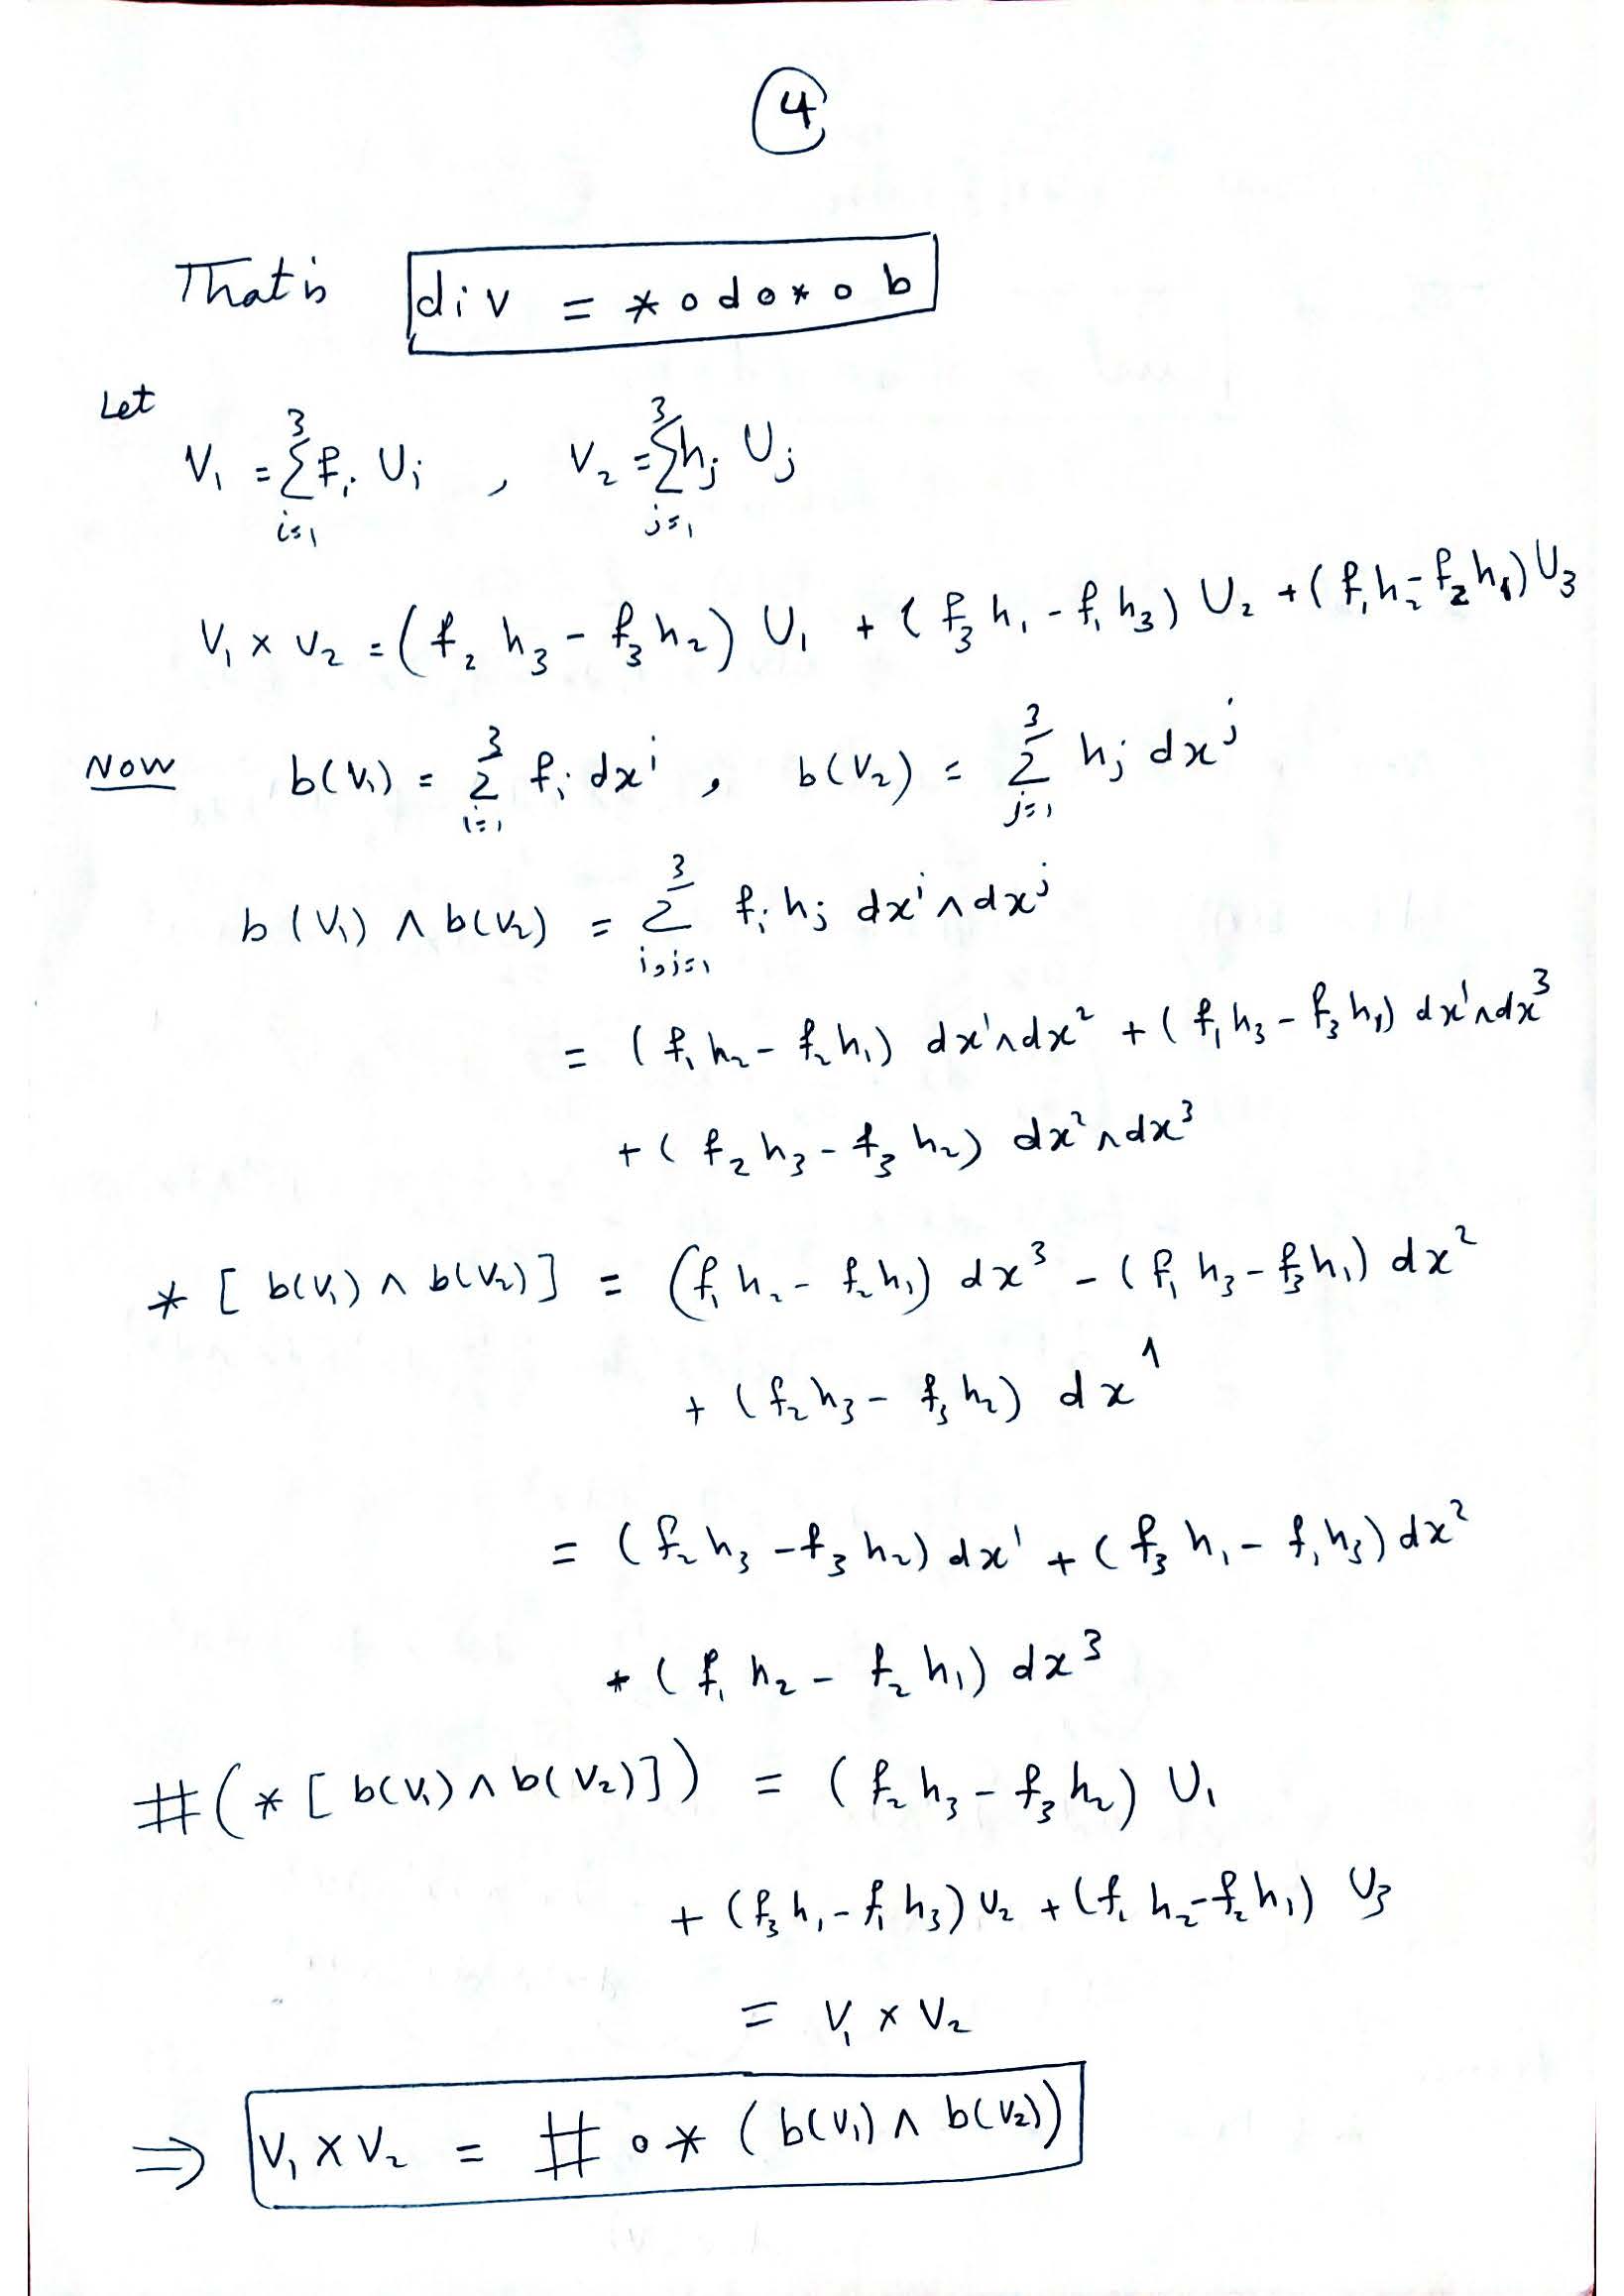 4
That is div = * o d o * o b
Let
V₁ = ∑³ᵢ₌₁ fᵢ Uᵢ , V₂ = ∑³ⱼ₌₁ hⱼ Uⱼ
V₁ × V₂ = (f₂ h₃ - f₃ h₂) U₁ + (f₃ h₁ - f₁ h₃) U₂ + (f₁ h₂ - f₂ h₁) U₃
Now b(V₁) = ∑³ᵢ₌₁ fᵢ dxⁱ , b(V₂) = ∑³ⱼ₌₁ hⱼ dxʲ
b(V₁) ∧ b(V₂) = ∑³ᵢ,ⱼ₌₁ fᵢ hⱼ dxⁱ ∧ dxʲ
= (f₁ h₂ - f₂ h₁) dx¹ ∧ dx² + (f₁ h₃ - f₃ h₁) dx¹ ∧ dx³
+ (f₂ h₃ - f₃ h₂) dx² ∧ dx³
* [ b(V₁) ∧ b(V₂) ] = (f₁ h₂ - f₂ h₁) dx³ - (f₁ h₃ - f₃ h₁) dx²
+ (f₂ h₃ - f₃ h₂) dx¹
= (f₂ h₃ - f₃ h₂) dx¹ + (f₃ h₁ - f₁ h₃) dx²
+ (f₁ h₂ - f₂ h₁) dx³
#(* [ b(V₁) ∧ b(V₂) ]) = (f₂ h₃ - f₃ h₂) U₁
+ (f₃ h₁ - f₁ h₃) U₂ + (f₁ h₂ - f₂ h₁) U₃
= V₁ × V₂
⇒ V₁ × V₂ = # o * (b(V₁) ∧ b(V₂))